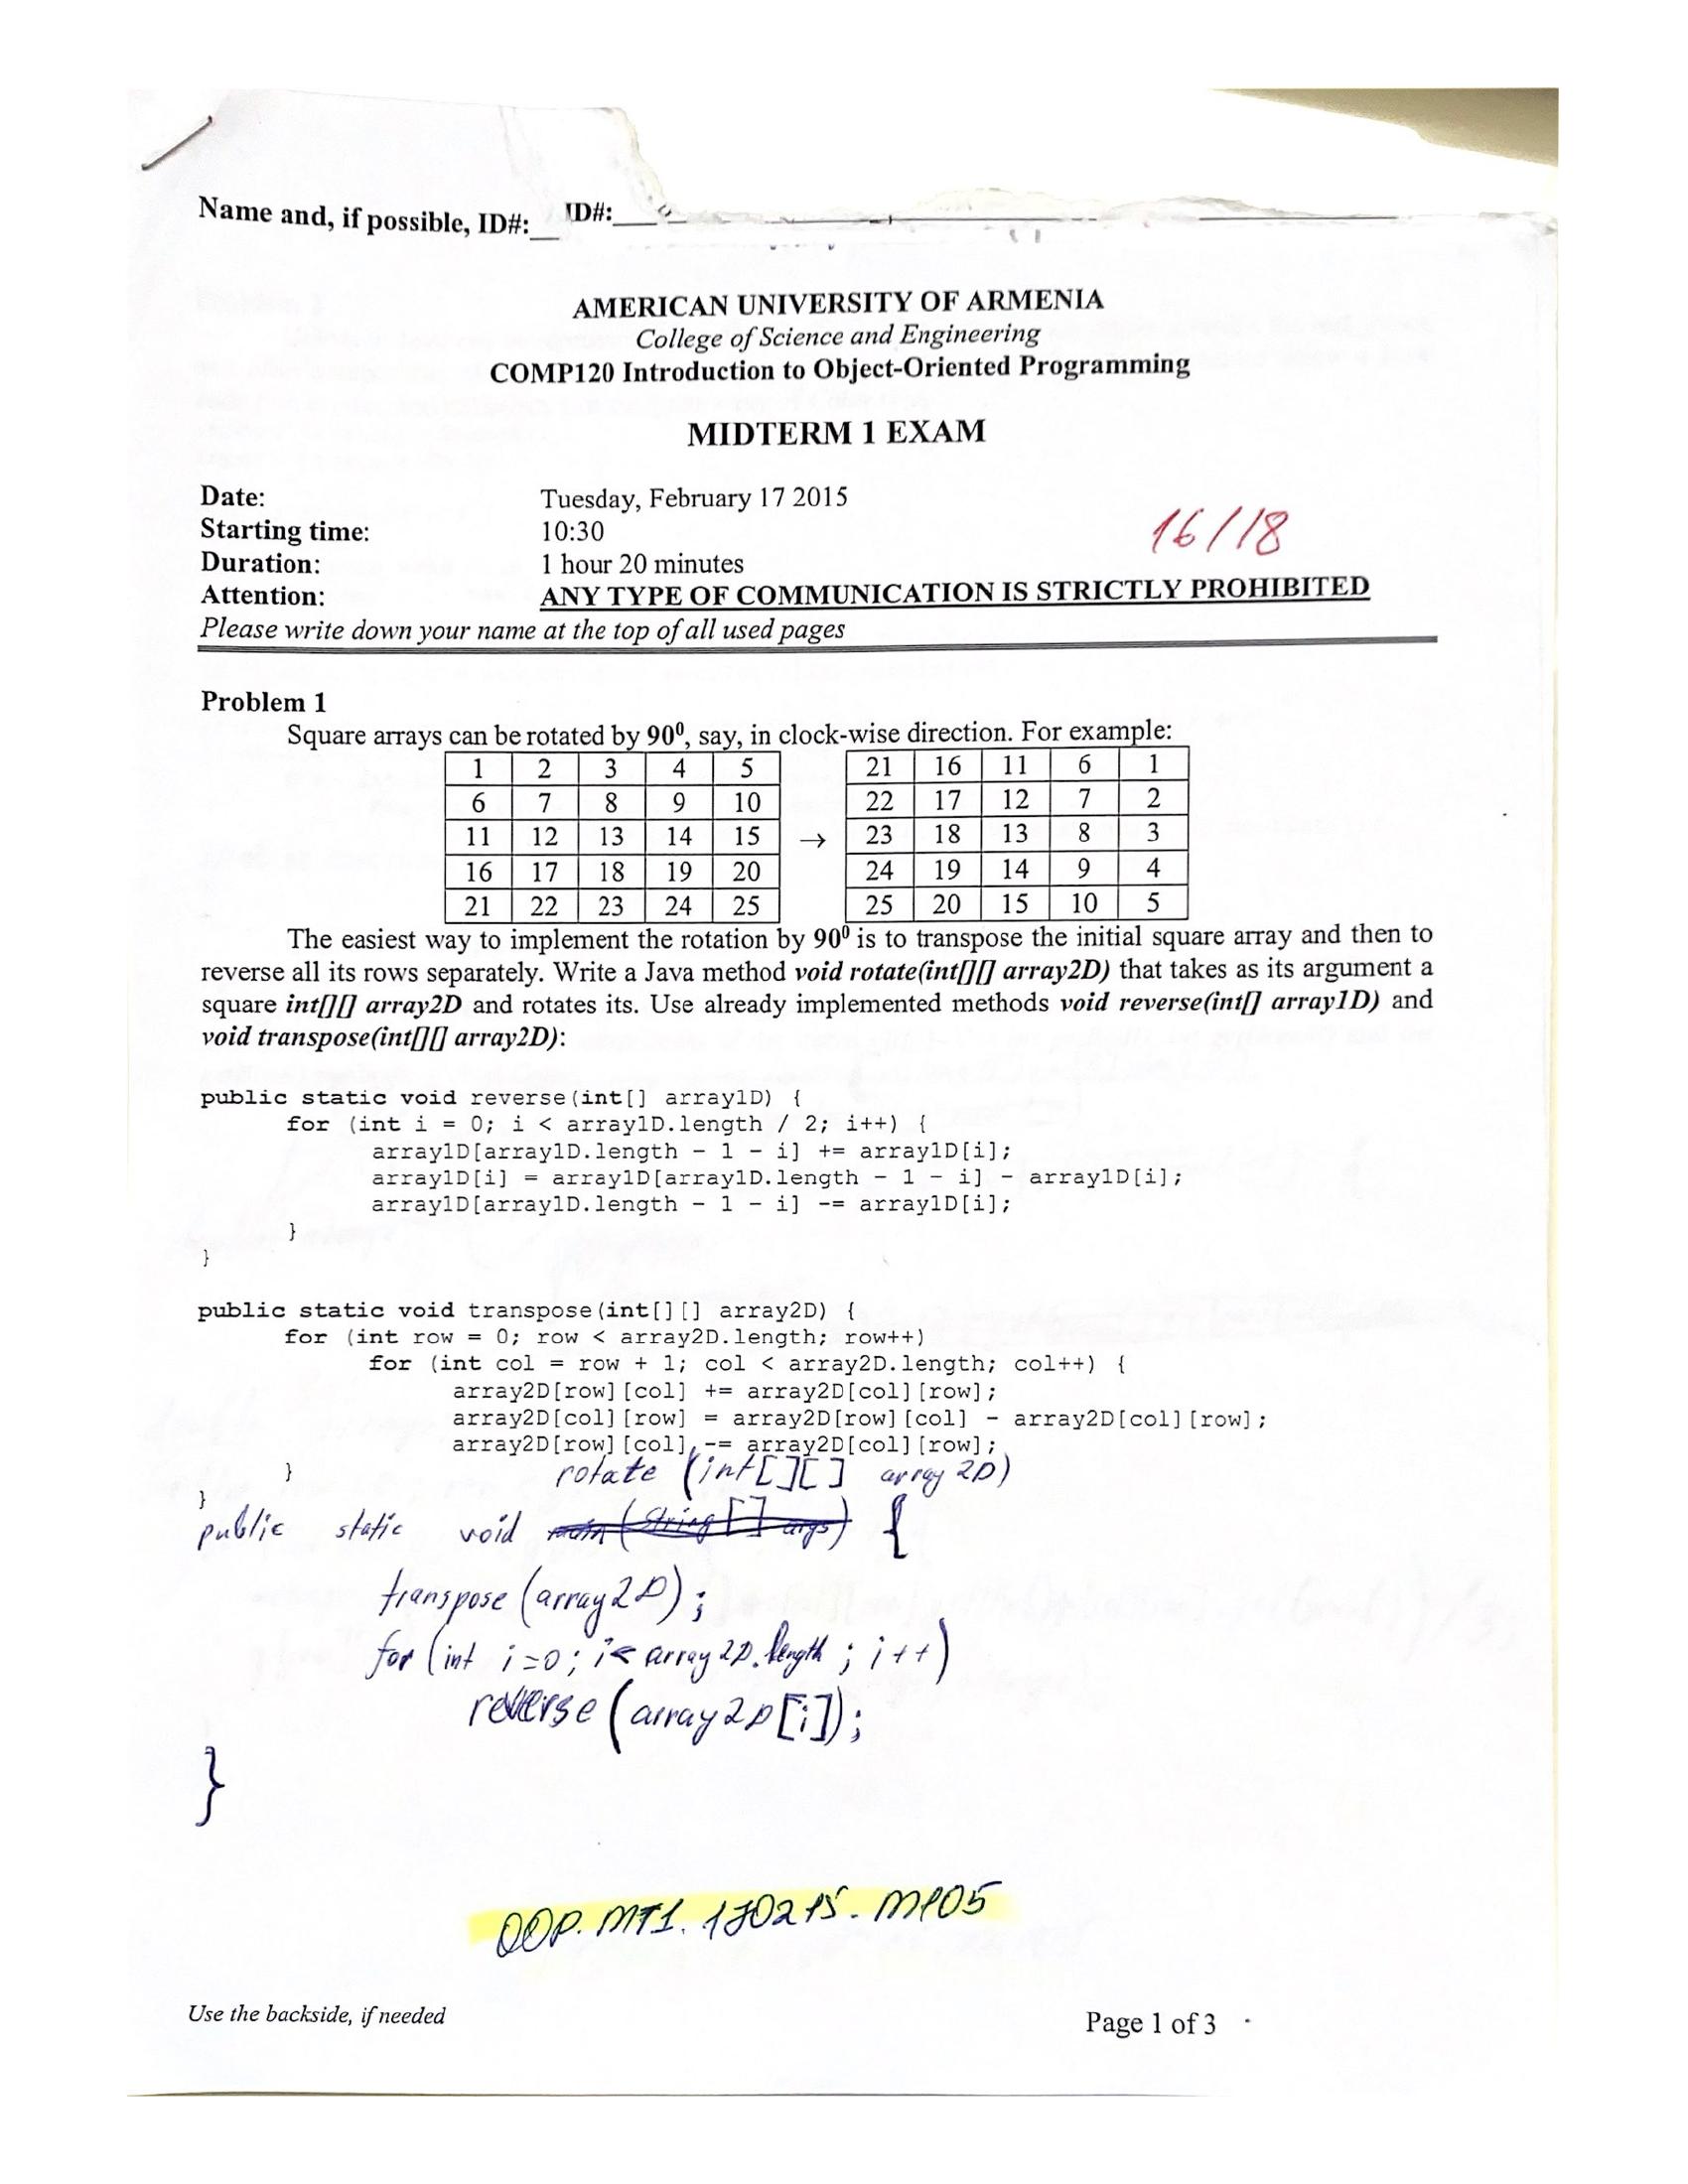 Name and, if possible, ID#:__ ID#:___
AMERICAN UNIVERSITY OF ARMENIA
College of Science and Engineering
COMP120 Introduction to Object-Oriented Programming
MIDTERM 1 EXAM
Date: Tuesday, February 17 2015
Starting time: 10:30
16/18
Duration: 1 hour 20 minutes
Attention: ANY TYPE OF COMMUNICATION IS STRICTLY PROHIBITED
Please write down your name at the top of all used pages
Problem 1
Square arrays can be rotated by 90⁰, say, in clock-wise direction. For example:
1 2 3 4 5 21 16 11 6 1
6 7 8 9 10 22 17 12 7 2
11 12 13 14 15 → 23 18 13 8 3
16 17 18 19 20 24 19 14 9 4
21 22 23 24 25 25 20 15 10 5
The easiest way to implement the rotation by 90⁰ is to transpose the initial square array and then to
reverse all its rows separately. Write a Java method void rotate(int[][] array2D) that takes as its argument a
square int[][] array2D and rotates its. Use already implemented methods void reverse(int[] array1D) and
void transpose(int[][] array2D):
public static void reverse(int[] array1D) {
for (int i = 0; i < array1D.length / 2; i++) {
array1D[array1D.length - 1 - i] += array1D[i];
array1D[i] = array1D[array1D.length - 1 - i] - array1D[i];
array1D[array1D.length - 1 - i] -= array1D[i];
}
}
public static void transpose(int[][] array2D) {
for (int row = 0; row < array2D.length; row++)
for (int col = row + 1; col < array2D.length; col++) {
array2D[row][col] += array2D[col][row];
array2D[col][row] = array2D[row][col] - array2D[col][row];
array2D[row][col] -= array2D[col][row];
}
rotate (int[][] array 2D)
}
public static void main (String [] args) {
transpose (array2D);
for (int i=0; i< array2D.length ; i++)
reverse (array2D[i]);
}
OOP.MT1.170215.MP05
Use the backside, if needed
Page 1 of 3